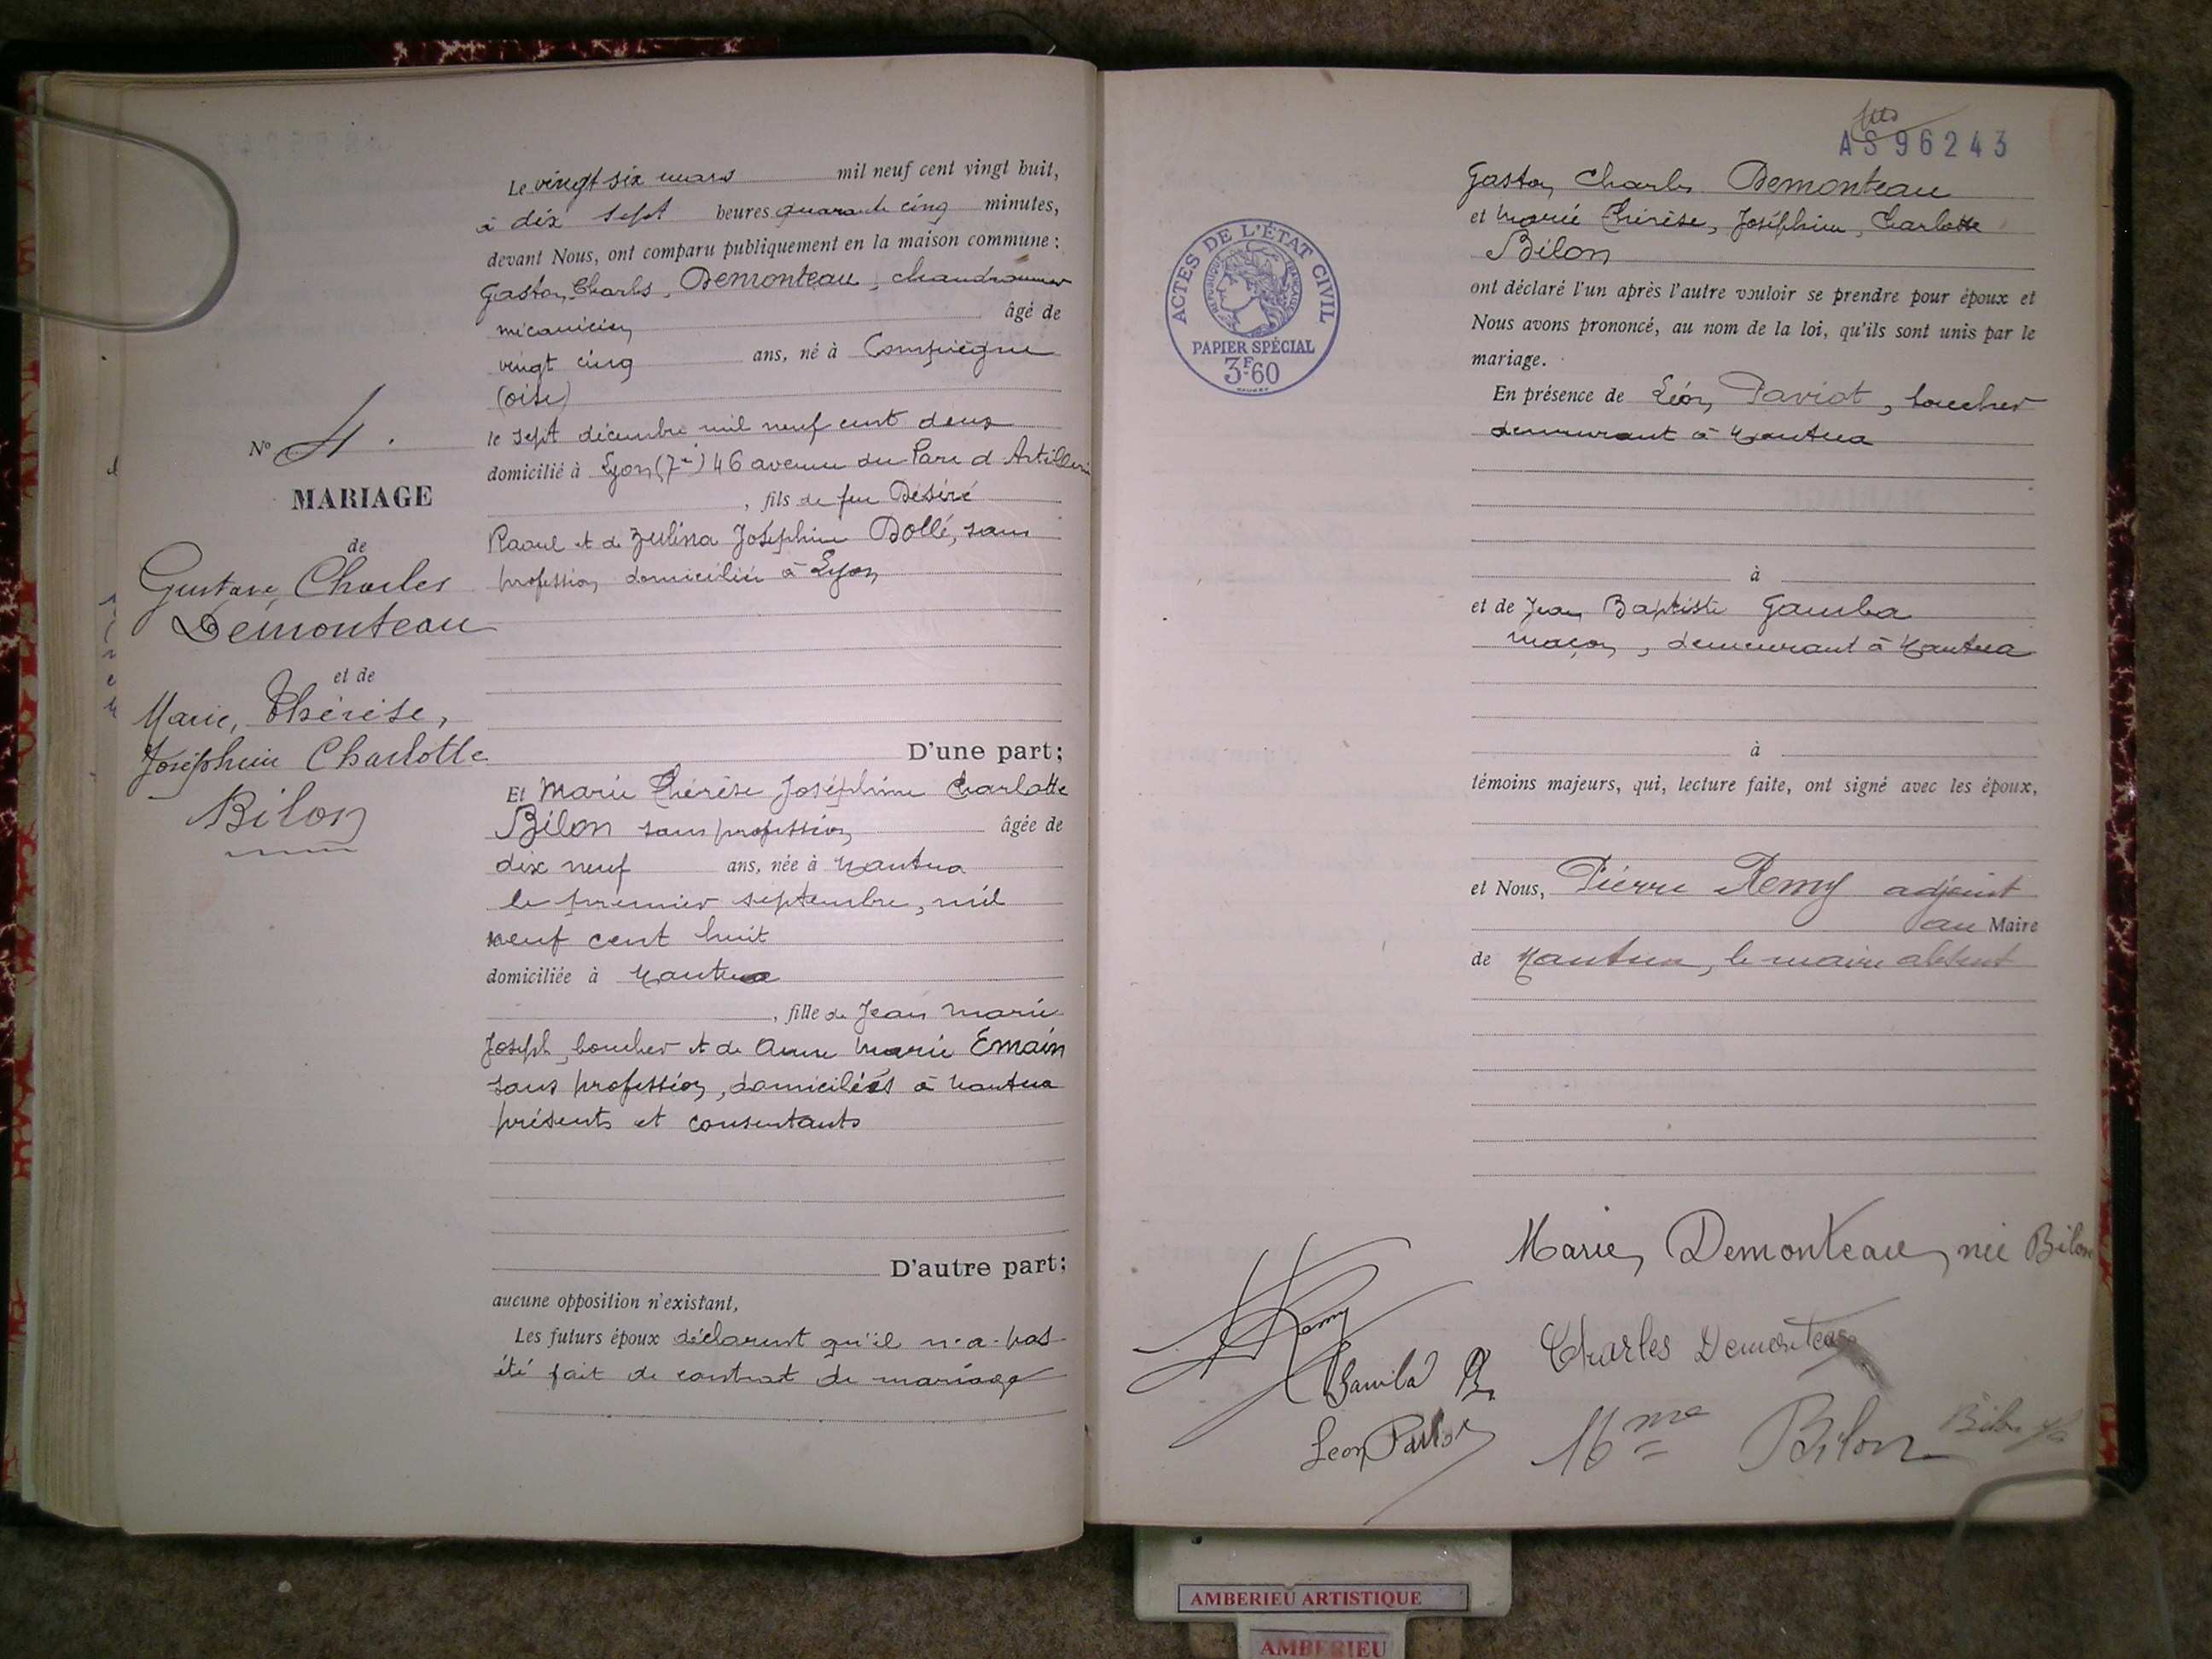 N° 4.
MARIAGE
de
Gustave Charles
Demonteau
et de
Marie, Thérèse,
Joséphine Charlotte
Bilon
Le vingt six mars mil neuf cent vingt huit,
à dix sept heures quarante cinq minutes,
devant Nous, ont comparu publiquement en la maison commune :
Gaston, Charles, Demonteau, chaudronnier
mécanicien âgé de
vingt cinq ans, né à Compiègne
(oise)
le sept décembre mil neuf cent deux
domicilié à Lyon (7e) 46 avenue du Parc d'Artillerie
, fils de feu Désiré
Raoul et de Zulina Joséphine Dollé, sans
profession domiciliée à Lyon
D'une part;
Et Marie Thérèse Joséphine Charlotte
Bilon sans profession âgée de
dix neuf ans, née à Nantua
le premier septembre, mil
neuf cent huit
domiciliée à Nantua
, fille de Jean Marie
Joseph, boucher et de Anne Marie Emain
sans profession, domiciliés à Nantua
présents et consentants
D'autre part;
aucune opposition n'existant,
Les futurs époux déclarent qu'il n'a pas
été fait de contrat de mariage
AS96243
Gaston Charles Demonteau
et Marie Thérèse, Joséphine, Charlotte
Bilon
ont déclaré l'un après l'autre vouloir se prendre pour époux et
Nous avons prononcé, au nom de la loi, qu'ils sont unis par le
mariage.
En présence de Léon Paviot, boucher
demeurant à Nantua
à
et de Jean Baptiste Gamba
maçon, demeurant à Nantua
à
témoins majeurs, qui, lecture faite, ont signé avec les époux,
et Nous, Pierre Remy adjoint
au Maire
de Nantua, le maire absent
ACTES DE L'ÉTAT CIVIL
RÉPUBLIQUE FRANÇAISE
PAPIER SPÉCIAL
3F60
Marie Demonteau née Bilon
Remy
Charles Demonteau
Leon Paviot
Mme Bilon
Bilon
AMBERIEU ARTISTIQUE
AMBERIEU